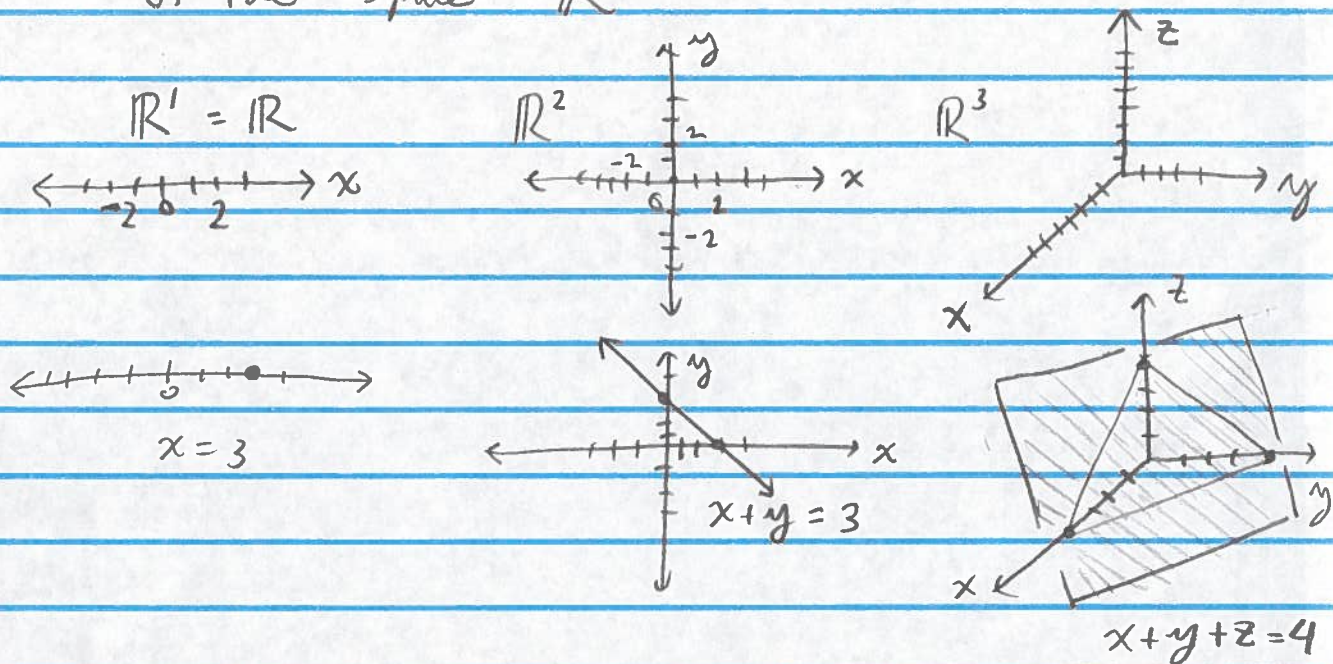 ℝ¹ = ℝ
x
-2 0 2
ℝ²
y
x
2
-2
0
2
-2
ℝ³
z
y
x
0
x = 3
y
x
x + y = 3
z
y
x
x + y + z = 4